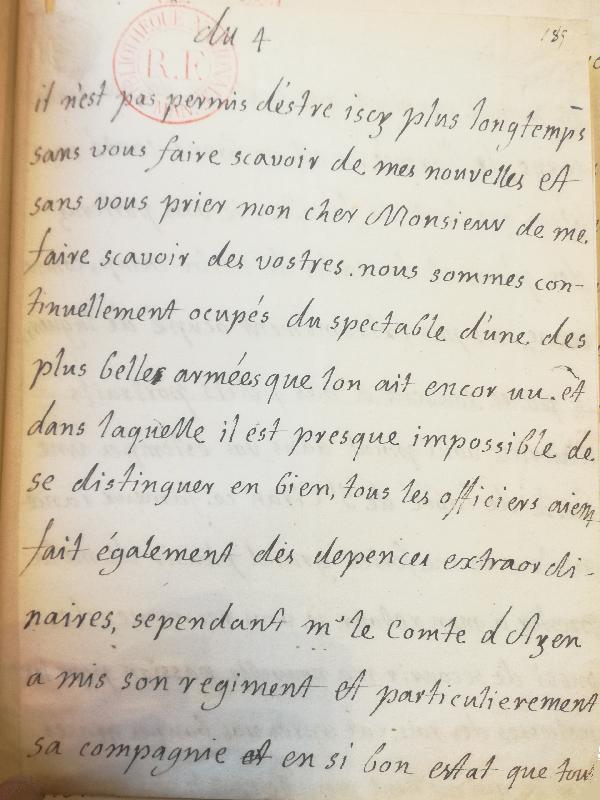 du 4
189
BIBLIOTHEQUE
R.F.
il n'est pas permis d'éstre iscy plus longtemps
sans vous faire scavoir de mes nouvelles et
sans vous prier mon cher Monsieur de me.
faire scavoir des vostres. nous sommes con-
tinuellement ocupés du spectable d'une des
plus belles armées que lon ait encor vu. et
dans laquelle il est presque impossible de.
se distinguer en bien, tous les officiers aient
fait également des depences extraordi-
naires, sependant mr le Comte d'Ayen
a mis son regiment et particulierement
sa compagnie en si bon estat que tout